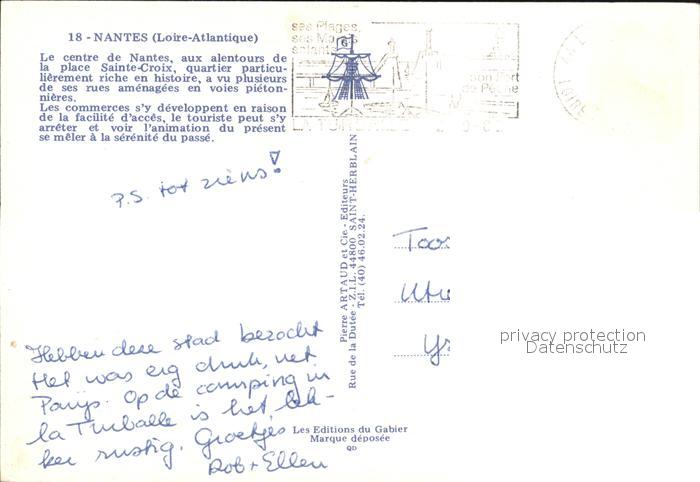 18 - NANTES (Loire-Atlantique)
Le centre de Nantes, aux alentours de
la place Sainte-Croix, quartier particu-
lièrement riche en histoire, a vu plusieurs
de ses rues aménagées en voies piéton-
nières.
Les commerces s'y développent en raison
de la facilité d'accés, le touriste peut s'y
arrêter et voir l'animation du présent
se mêler à la sérénité du passé.
ses Plages,
son Port
de Pêche
G
P.S. tot ziens!
Pierre ARTAUD et Cie - Editeurs
Rue de la Dutée - Z.I.L. 44800 SAINT-HERBLAIN
Tél. (40) 46.02.24.
Toos
Utr
privacy protection
Datenschutz
Hebben deze stad bezocht
Het was erg druk, net
Parijs. Op de camping in
la Turballe is het lek-
ker rustig. Groetjes
Rob + Ellen
Les Editions du Gabier
Marque déposée
QD